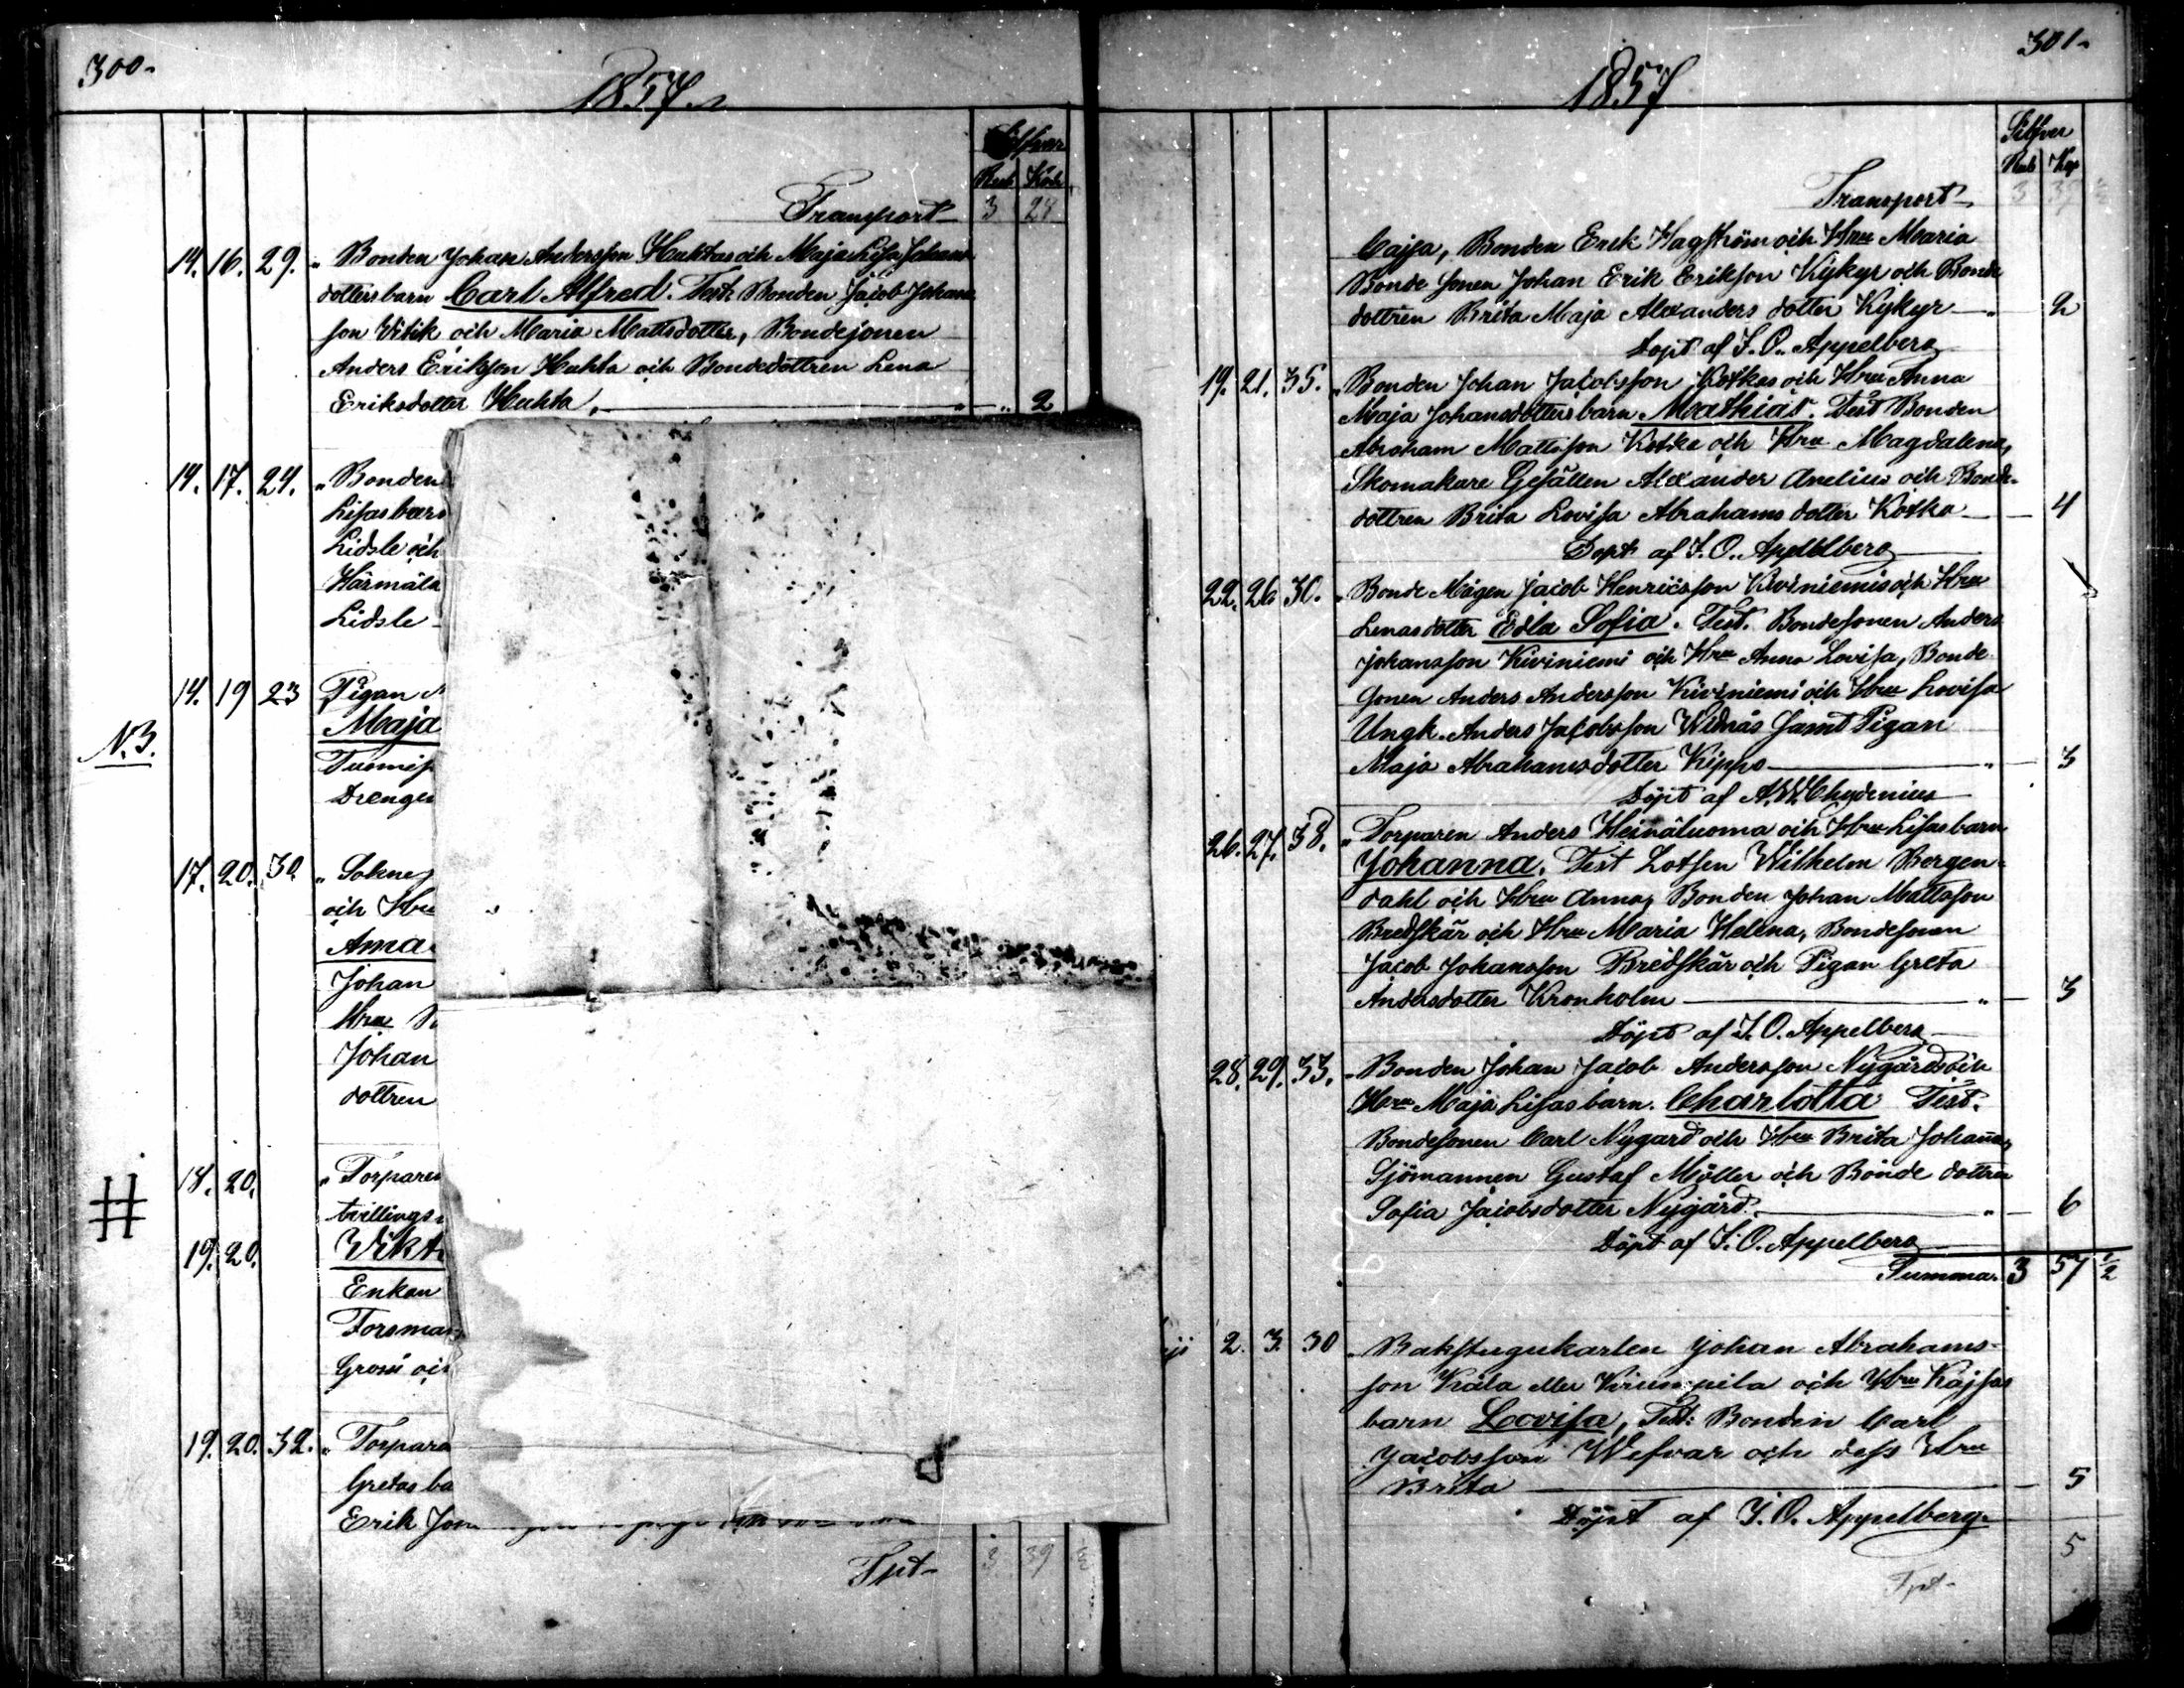 300.
1857.
Silfwer
Rub Kop
Transport 3 28
14. 16. 29. " Bonden Johan Andersson Huhtas och Maja Lisa Johans
dotters barn Carl Alfred. Test: Bonden Jacob Johans
son Witik och Maria Mattsdotter, Bondesonen
Anders Eriksson Huhta och Bondedottren Lena
Eriksdotter Huhta. " 2
14. 17. 24. " Bonden
Lisas barn
Lidsle och
Härmälä
Lidsle
14. 19 23 Pigan
N.3. Maja
Tuomis
Drengen
17. 20. 30. " Sokne
och Hru
Ama
Johan
Hru
Johan
dottren
# 18. 20. " Torparen
tvillings
19. 20. Wikt
Enkan
Forsman
Gross och
19. 20. 32. " Torpare
Gretas ba
Erik Jon
Tpt 3 39
301.
1857
Silfver
Rub Kop
Transport 3 39
Cajsa, Bonden Erik Hagström och Hru Maria
Bonde sonen Johan Erik Erikson Kykyr och Bonde
dottren Brita Maja Alexanders dotter Kykyr " 2
Döpt af J. O. Appelberg
19. 21. 35. " Bonden Johan Jacobsson Kotkas och Hru Anna
Maja Johansdotters barn Mathias. Test Bonden
Abraham Mattsson Kotka och Hru Magdalena,
Skomakare Gesällen Alexander Anelius och Bonde-
dottren Brita Lovisa Abrahams dotter Kotka 4
Döpt af J. O. Appelberg
22. 26 30. " Bonde Mågen Jacob Henricsson Kiviniemis och Hru
Lenas dotter Edla Sofia. Test. Bondesonen Anders
Johansson Kiviniemi och Hru Anna Lovisa, Bonde
sonen Anders Andersson Kiviniemi och Hru Lovisa
Ungk. Anders Jacobsson Widnäs samt Pigan
Maja Abrahamsdotter Kippo " 3
Döpt af A. W. Chydenius
26. 27. 38. " Torparen Anders Heinäluoma och Hru Lisas barn
Johanna. Test Lotsen Wilhelm Bergen-
dahl och Hru Anna, Bonden Johan Mattsson
Bredskär och Hru Maria Helena, Bondesonen
Jacob Johansson Bredskär och Pigan Greta
Andersdotter Kronholm " 3
Döpt af J. O. Appelberg
28. 29. 33. " Bonden Johan Jacob Andersson Nygårds och
Hru Maja Lisas barn. Charlotta Test.
Bondesonen Carl Nygard och Hru Brita Johanna,
Sjömannen Gustaf Möller och Bonde dottren
Sofia Jacobsdotter Nygård. " 6
Döpt af J. O. Appelberg
Summa 3 57 1/2
2. 3. 30 " Bakstugukarlen Johan Abrahams-
son Kåla eller Krumpila och Hru Kajsas
barn Loovisa, Test: Bonden Carl
Jacobsson Wefvar och dess Hru
Brita 5
Döpt af J. O. Appelberg
5
Tpt